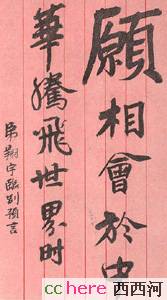 願相會於中
華騰飛世界时
弟翔宇臨别預言
cchere 西西河